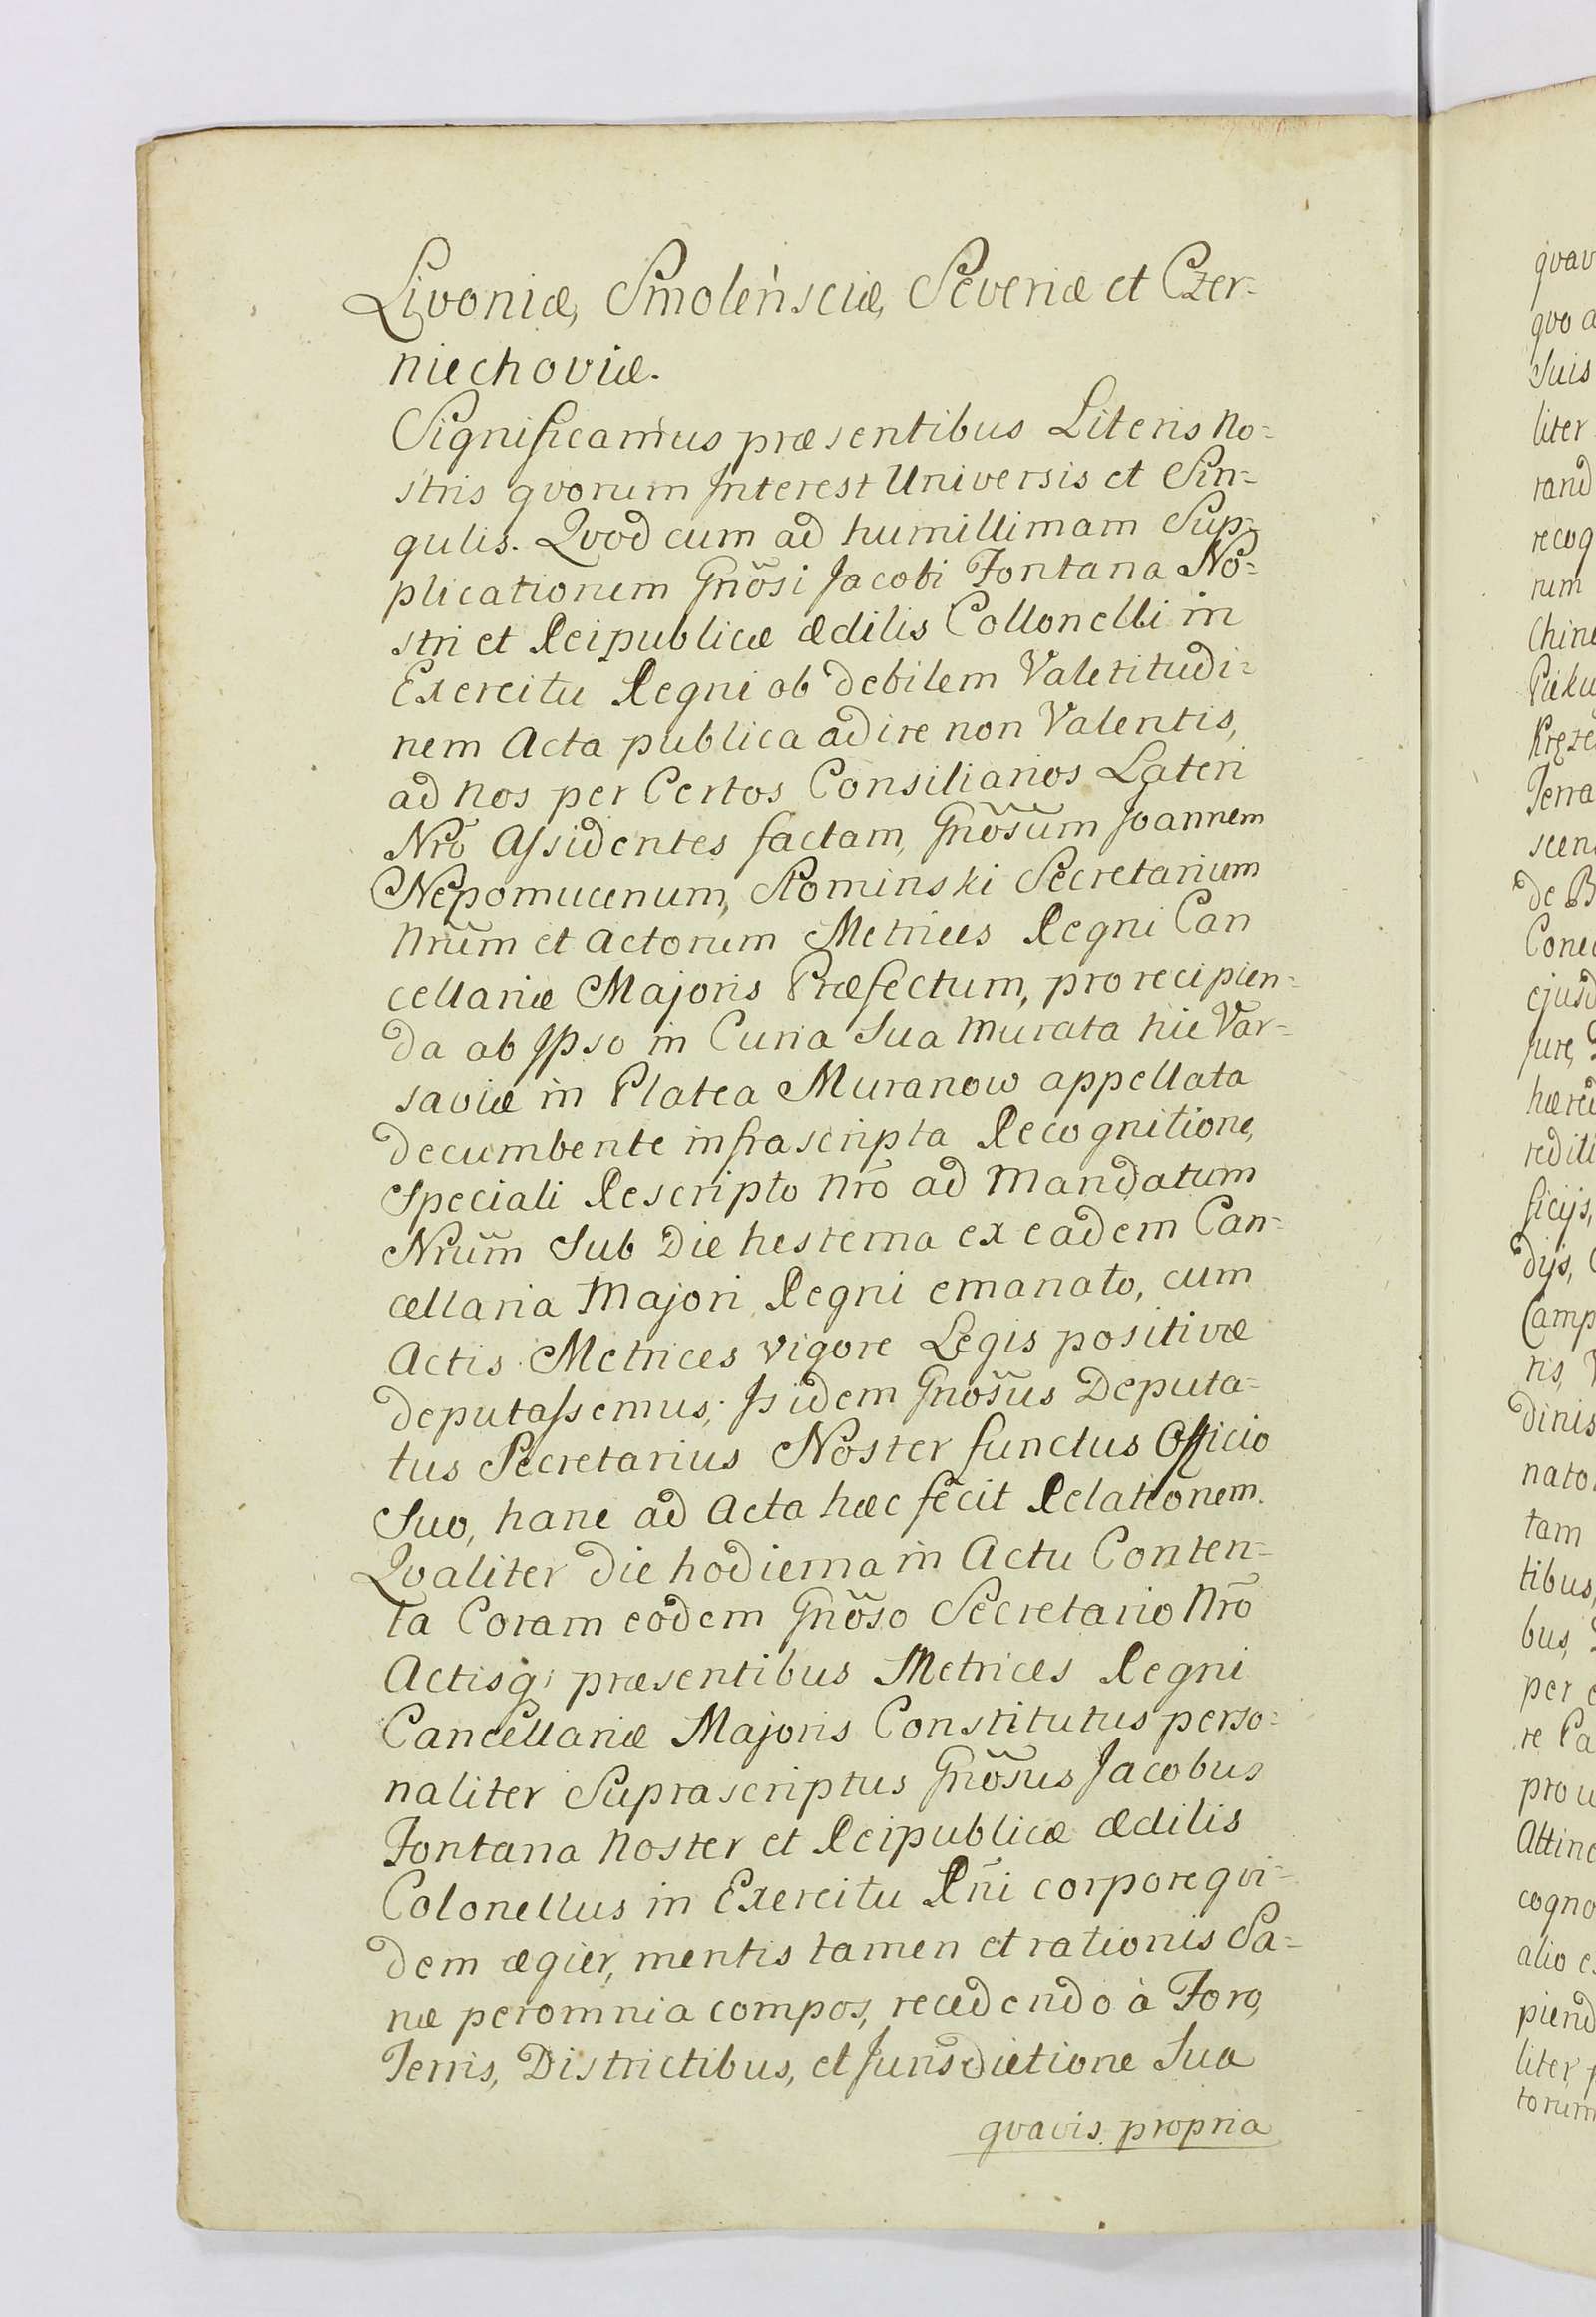 Livoniæ, Smolenściæ, Severiæ et Czer=
niechoviæ.
Significamus præsentibus Literis no=
stris qvorum Interest Universis et Sin=
gulis. Qvod cum ad humillimam Sup=
plicationem Gnõsi Jacobi Fontana No=
stri et Reipublicæ ædilis Collonelli in
Exercitu Regni ob debilem Valetitudi=
nem Acta publica adire non Valentis,
ad nos per Certos Consiliarios Lateri
Nrõ Assidentes factam, Gnõsum Joannem
Nepomucenum, Słominski Secretarium
nrũm et actorum Metrices Regni Can
cellariæ Majoris Præfectum, pro recipien=
da ab Ipso in Curia Sua murata hic Var=
saviæ in Platea Muranow appellata
decumbente infrascripta Recognitione,
Speciali Rescripto nrõ ad Mandatum
Nrũm Sub Die hesterna ex eadem Can=
cellaria Majori Regni emanato, cum
Actis Metrices vigore Legis positivæ
deputassemus; Isidem Gnõsus Deputa=
tus Secretarius Noster functus Officio
Suo, hanc ad Acta hæc fecit Relationem.
Qvaliter die hodierna in Actu Conten=
ta Coram eodem Gnõso Secretario Nrõ
Actisq; præsentibus Metrices Regni
Cancellariæ Majoris Constitutus perso=
naliter Suprascriptus Gnõsus Jacobus
Fontana Noster et Reipublicæ ædilis
Colonellus in Exercitu Rñi corpore qvi=
dem ægier, mentis tamen et rationis Sa=
næ peromnia compos, recedendo à Foro,
Terris, Districtibus, et Jurisdictione Sua
qvavis propria
qvav
qvo a
Suis
liter
rand
recog
rum
Chine
Terra
scen
de B
ejusd
jure,
hæred
ficijs,
dijs,
Camp
ris,
dinis
nato
tam
tibus,
bus,
per
re Pa
pro u
Attine
cogno
alio
piend
liter,
torum